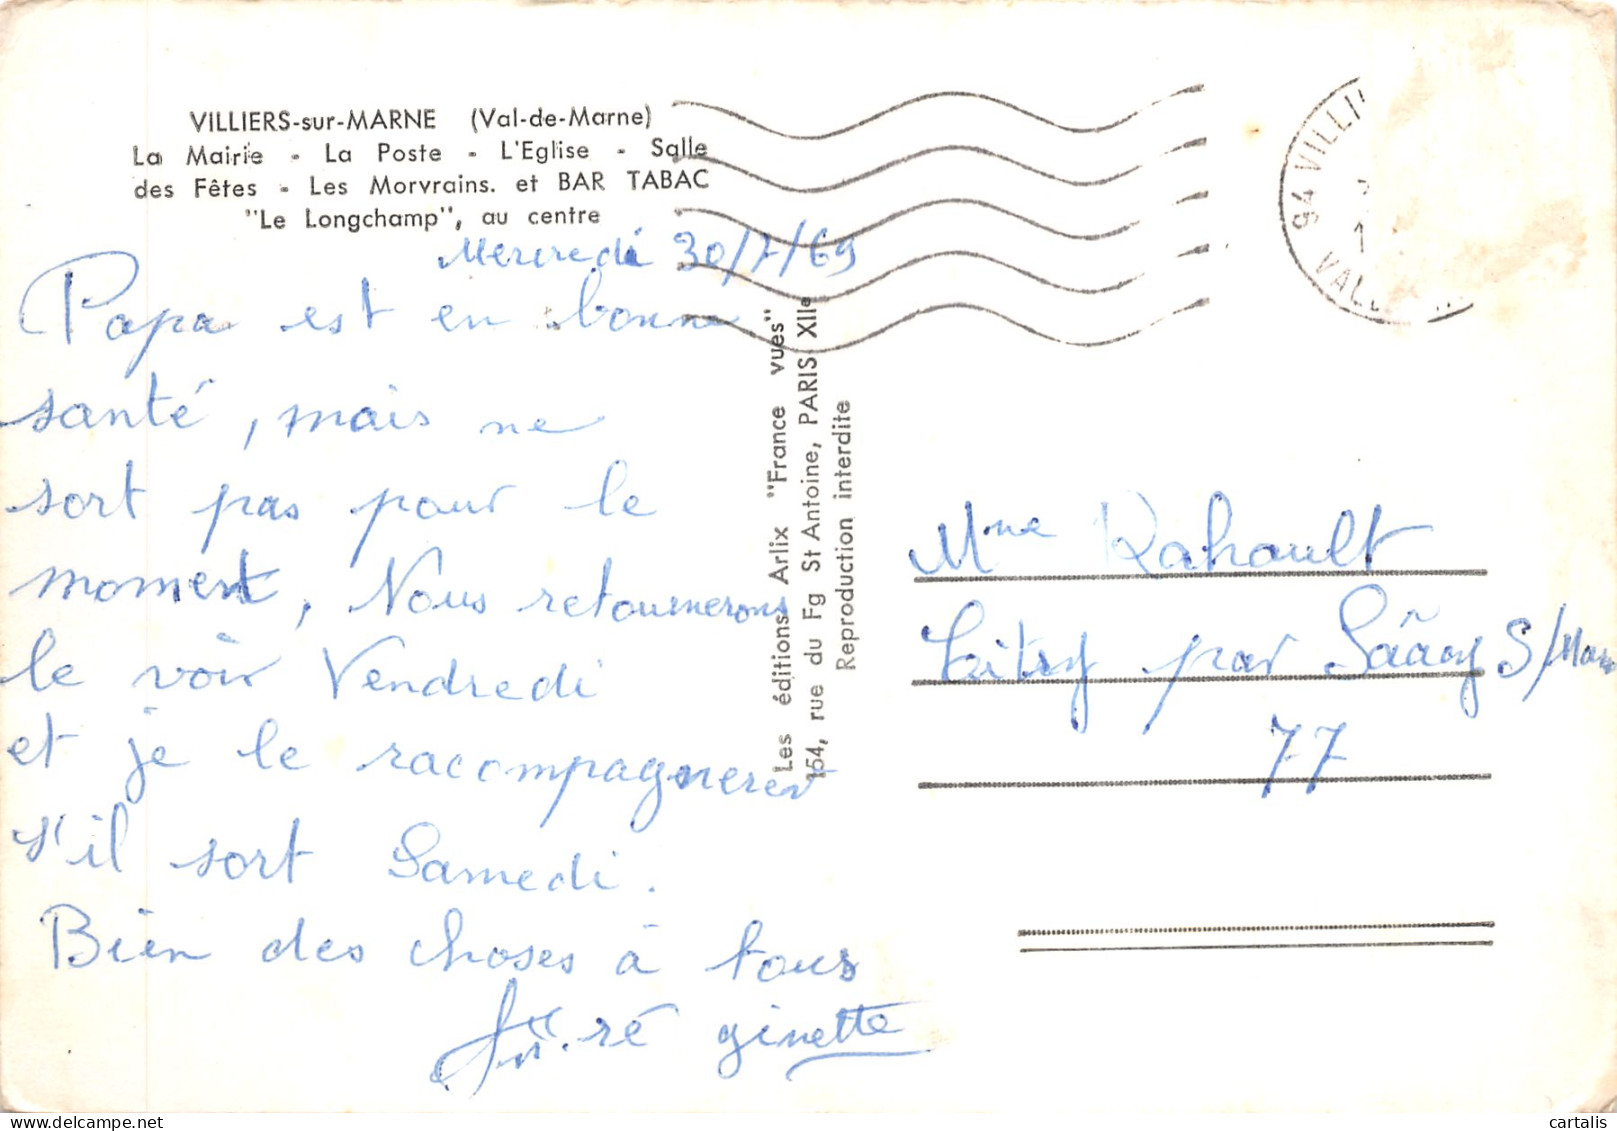 VILLIERS-sur-MARNE (Val-de-Marne)
La Mairie - La Poste - L'Eglise - Salle
des Fêtes - Les Morvrains. et BAR TABAC
"Le Longchamp", au centre
Mercredi 30/7/69
Papa est en bonne
santé, mais ne
sort pas pour le
moment, Nous retournerons
le voir Vendredi
et je le racompagnerer
s'il sort Samedi.
Bien des choses à tous
ginette
Les éditions Arlix "France vues"
154, rue du Fg St Antoine, PARIS XIIe
Reproduction interdite
94 VILLI
VAL
Mme Rahault
Citry par Sâàcy S/Marne
77
cartalis